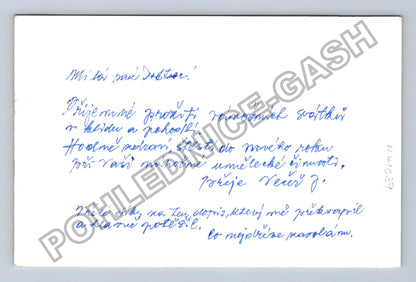 Milá paní Doktor!
Příjemné prožití vánočních svátků
v klidu a pohodě.
Hodně zdraví, štěstí do nového roku
při Vaší náročné umělecké činnosti.
Přeje Večeř J.
díky za Len dopis, který mě překvapil
a hlavně potěšil.
Co nejdříve zavolám.
POHLEDNICE-GASH